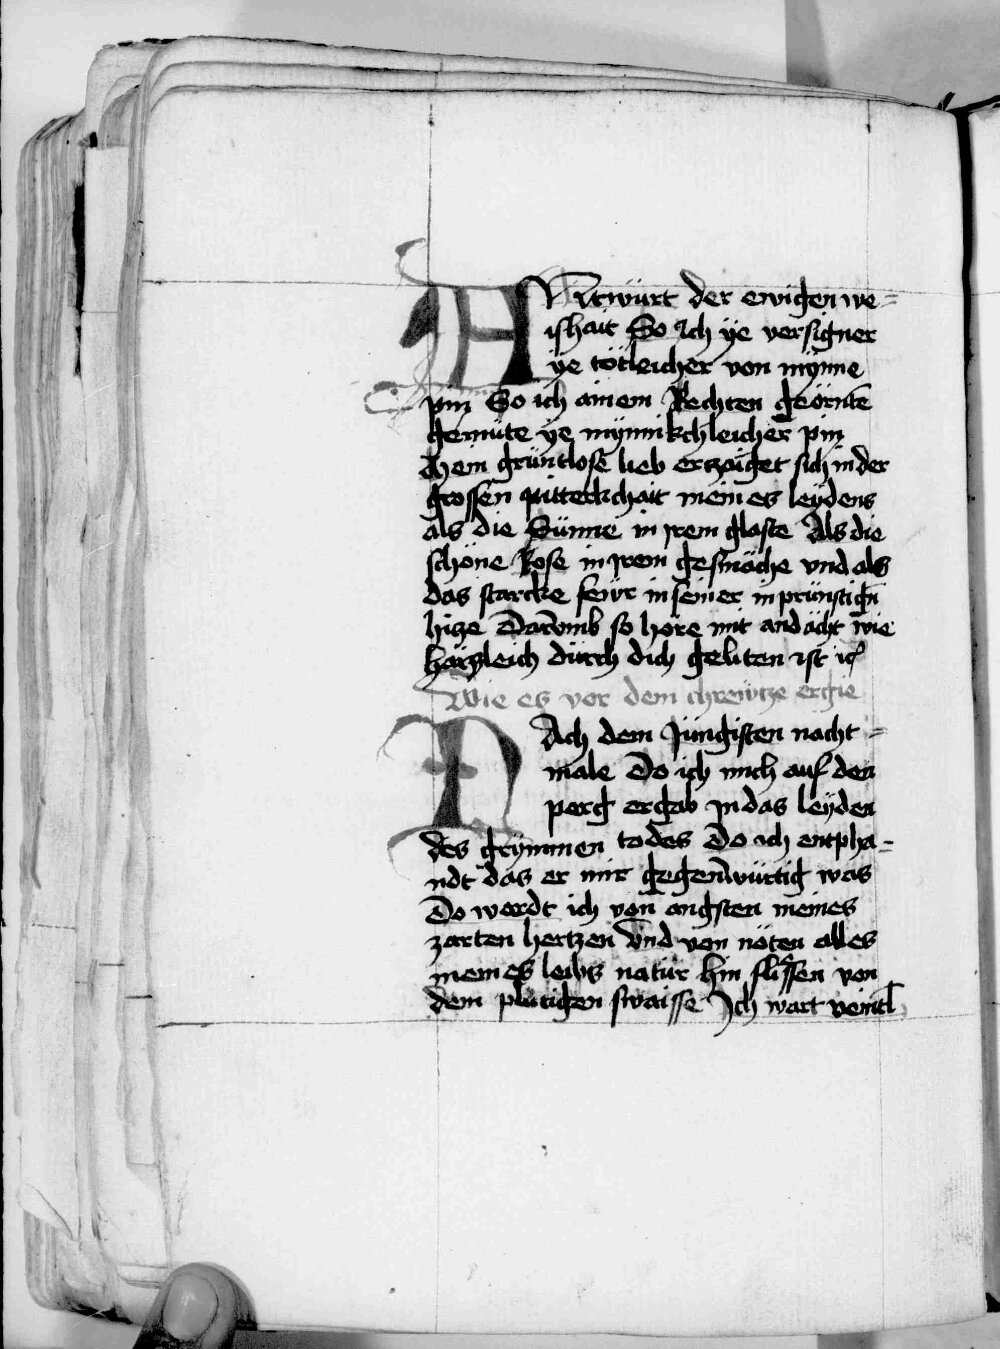 Antwürt der ewigen we-
ishait So Ich ye versigner
ye tötleicher von mynne
pin So ich ainem Rechten geörnte
gemüte ye mynnikchleicher pin
Mein grüntlose lieb erzaiget sich in der
grossen pitterkchait meines leydens
als die Sünne in irem glaste Als die
schöne Rose in irem gesmache vnd als
das starcke feivr in seiner inprünstign
hitze Darvmb so höre mit andacht wie
härzleich dürch dich geliten ist ic
Wie es vor dem chrewtze ergie
Nach dem Jüngisten nacht-
male Do ich mich auf den
perg ergab in das leyden
des grymmen todes Do ich entpha-
ndt das er mir gegenwürtig was
Do wordt ich von angsten meines
zarten hertzen vnd von nöten alles
meines leibs natür hin flissen von
dem plutigen swaisse Ich wart veintl